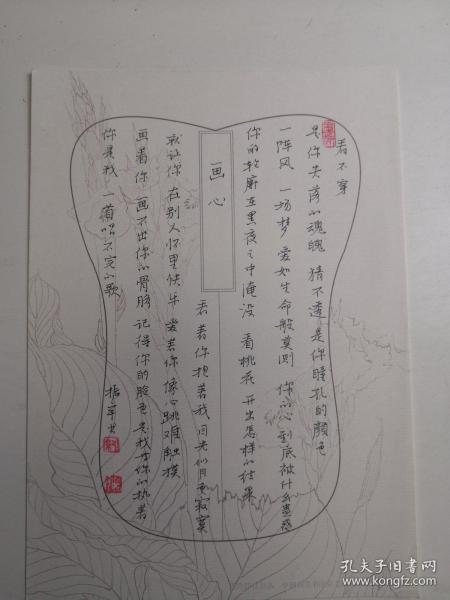 看不穿
是你失落的魂魄 猜不透 是你瞳孔的颜色
一阵风 一场梦 爱如生命般莫测 你的心到底被什么蛊惑
你的轮廓在黑夜之中淹没 看桃花 开出怎样的结果
画心
看着你抱着我 目光似月更寂寞
就让你在别人怀里快乐 爱着你 像心跳难触摸
画着你 画不出你的骨骼 记得你的脸色 是我等你的执着
你是我 一首唱不完的歌
孔夫子旧书网